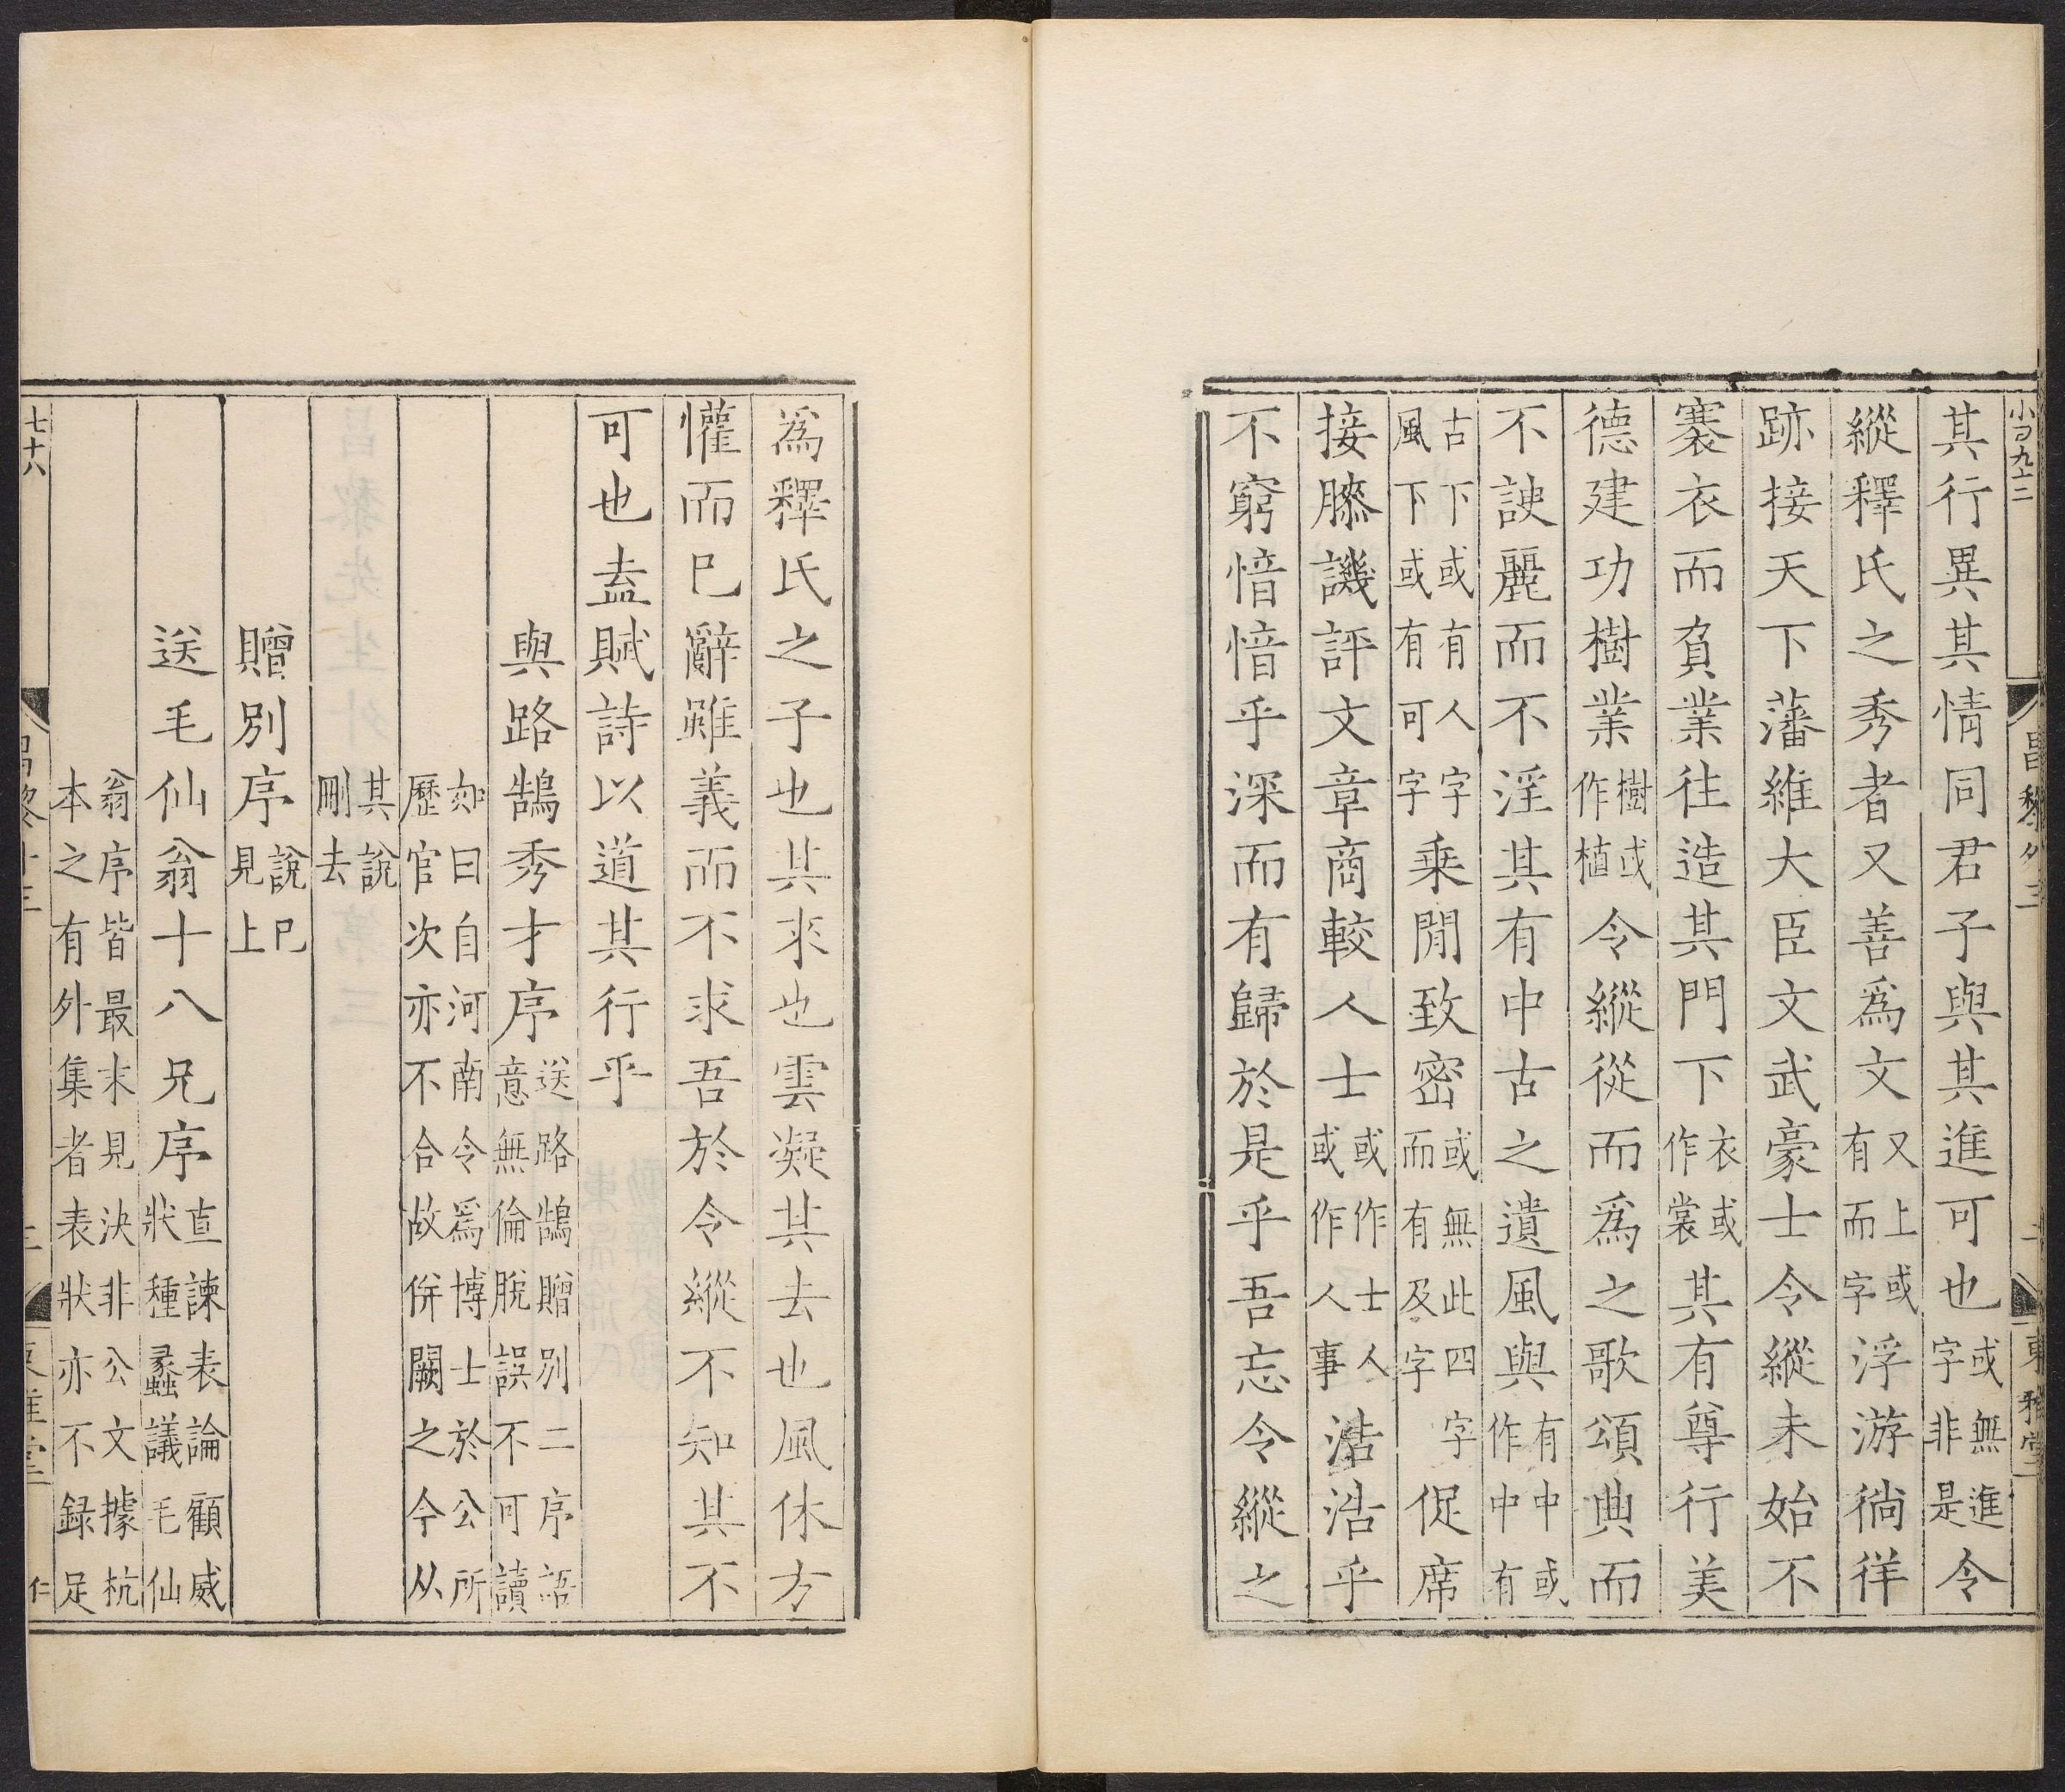 其行異其情同君子與其進可也或無進字非是令
縱釋氏之秀者又善爲文又上或有而字浮游徜徉
跡接天下藩維大臣文武豪士令縱未始不
褰衣而負業往造其門下衣或作裳其有尊行美
德建功樹業樹或作植令縱從而爲之歌頌典而
不諛麗而不淫其有中古之遺風與有中或作中有
古下或有人字風下或有可字乗閒致密或無此四字而有及字促席
接膝譏評文章商較人士或作士人或作人事浩浩乎
不窮愔愔乎深而有歸於是乎吾忘令縱之
小百九十二
昌黎外三
東雅堂
爲釋氏之子也其來也雲凝其去也風休方
懽而已辭雖義而不求吾於令縱不知其不
可也盍賦詩以道其行乎
與路鵠秀才序送路鵠贈别二序語意無倫脱誤不可讀
如曰自河南令爲博士於公所歷官次亦不合故併闕之今从
其說刪去
贈别序說已見上
送毛仙翁十八兄序直諫表論顧威狀種蠡議毛仙
翁序皆最末見決非公文據杭本之有外集者表狀亦不録足
七十八
昌黎外三
三
東雅堂
仁